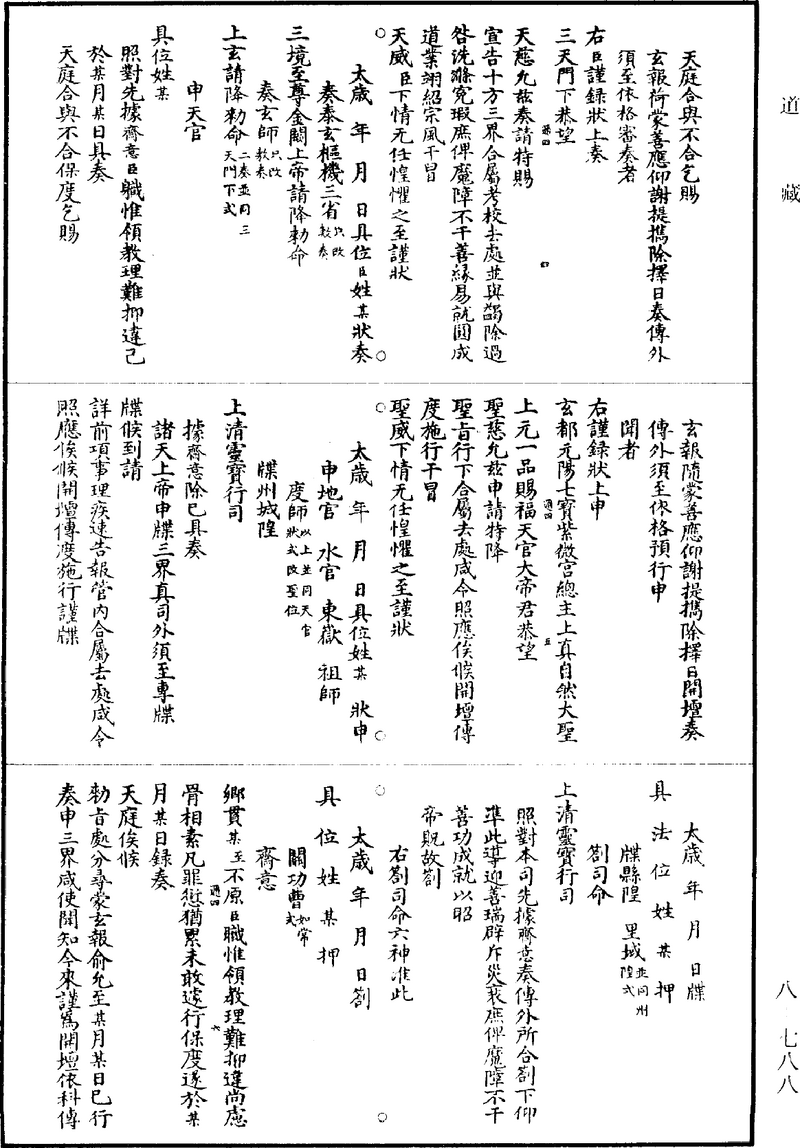 道藏
天庭合與不合乞賜
玄報荷蒙善應仰謝提攜除擇日奏傳外
須至依格審奏者
右臣謹錄狀上奏
三天門下恭望
天慈允茲奏請特賜
宣告十方三界合屬考校去處並與蠲除過
咎洗滌冤瑕庶俾魔障不干善緣易就圓成
道業翊紹宗風干冒
天威臣下情无任惶懼之至謹狀
太歲 年 月 日具位臣姓某狀奏
奏泰玄樞機三省只改教奏
三境至尊金闕上帝請降勑命
奏玄師只改教奏
上玄請降勑命二奏並同三天門下式
申天官
具位姓某
照對先據齋意臣職惟領教理難抑違已
於某月某日具奏
天庭合與不合保度乞賜
玄報隨蒙善應仰謝提攜除擇日開壇奏
傳外須至依格預行申
聞者
右謹錄狀上申
玄都元陽七寶紫微宮總主上真自然大聖
上元一品賜福天官大帝君恭望
聖慈允茲申請特降
聖旨行下合屬去處咸令照應俟候開壇傳
度施行干冒
聖威下情无任惶懼之至謹狀
太歲 年 月 日具位姓某 狀申
申地官 水官 東嶽 祖師
度師以上並同天官狀式改聖位
牒州城隍
上清靈寶行司
據齋意除已具奏
諸天上帝申牒三界真司外須至專牒
牒候到請
詳前項事理疾速告報管內合屬去處咸令
照應俟候開壇傳度施行謹牒
太歲 年 月 日牒
具法位姓某押
牒縣隍 里域並同州隍式
劄司命
上清靈寶行司
照對本司先據齋意奏傳外所合劄下仰
準此導迎善瑞辟斥災衺庶俾魔障不干
善功成就以昭
帝貺故劄
右劄司命六神准此
太歲 年 月 日劄
具位姓某押
關功曹如常式
齋意
鄉貫某至不原臣職惟領教理難抑違尚慮
骨相素凡罪愆猶累未敢遽行保度遂於某
月某日錄奏
天庭俟候
勑旨處分尋蒙玄報俞允至某月某日已行
奏申三界咸使聞知今來謹為開壇依科傳
八·七八八